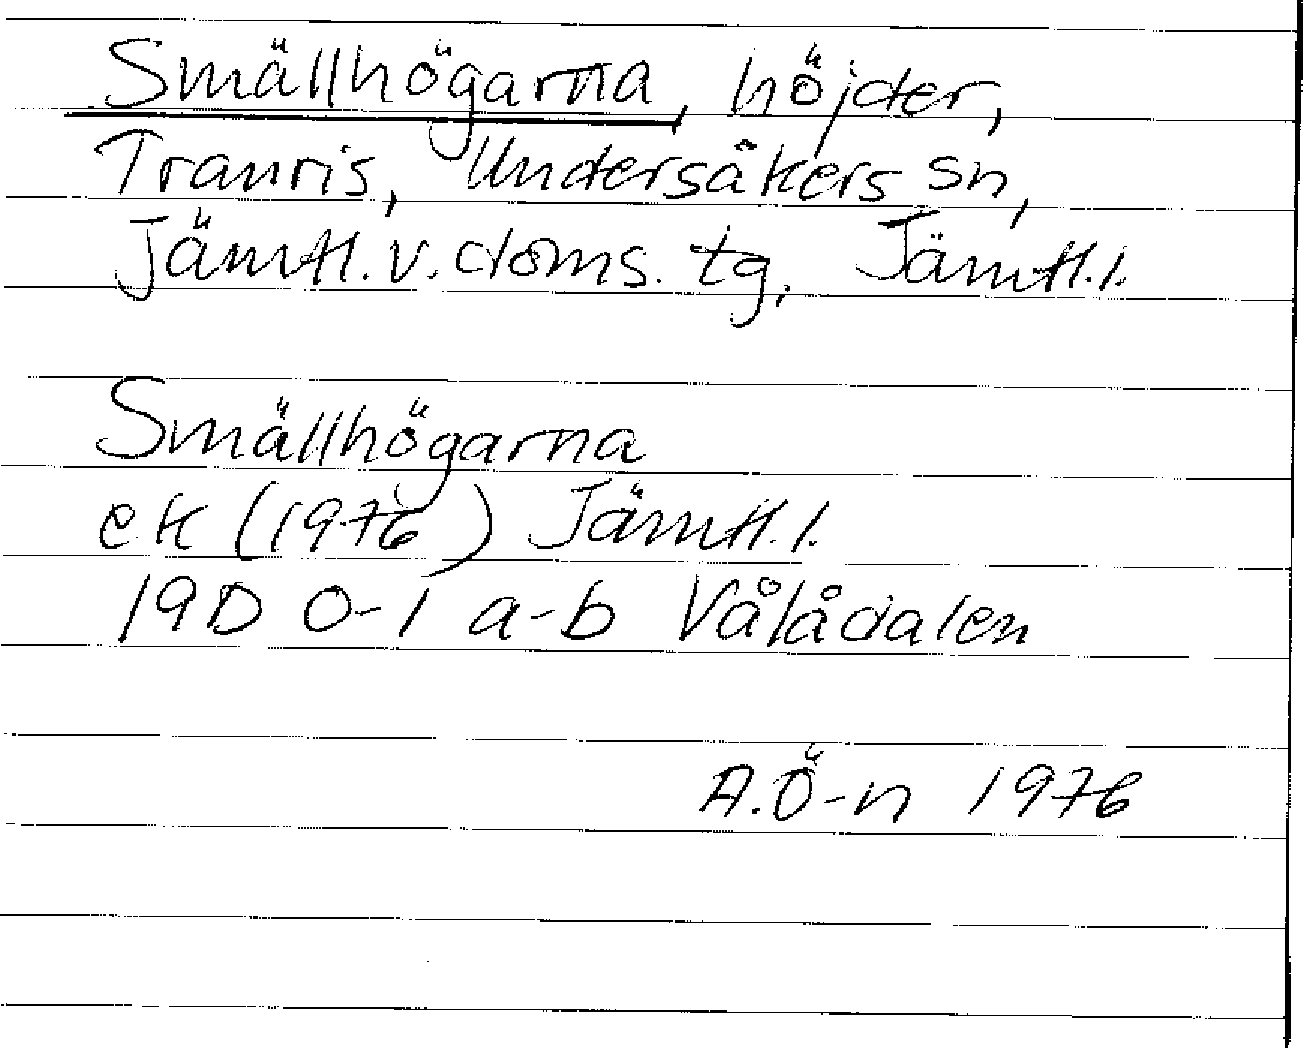 Smällhögarna, höjder,
Tranris, Undersåkers sn,
Jämtl. v. doms. tg, Jämtl. l.
Smällhögarna
ek (1976) Jämtl. l.
19D 0-1 a-b Vålådalen
A.Ö-n 1976